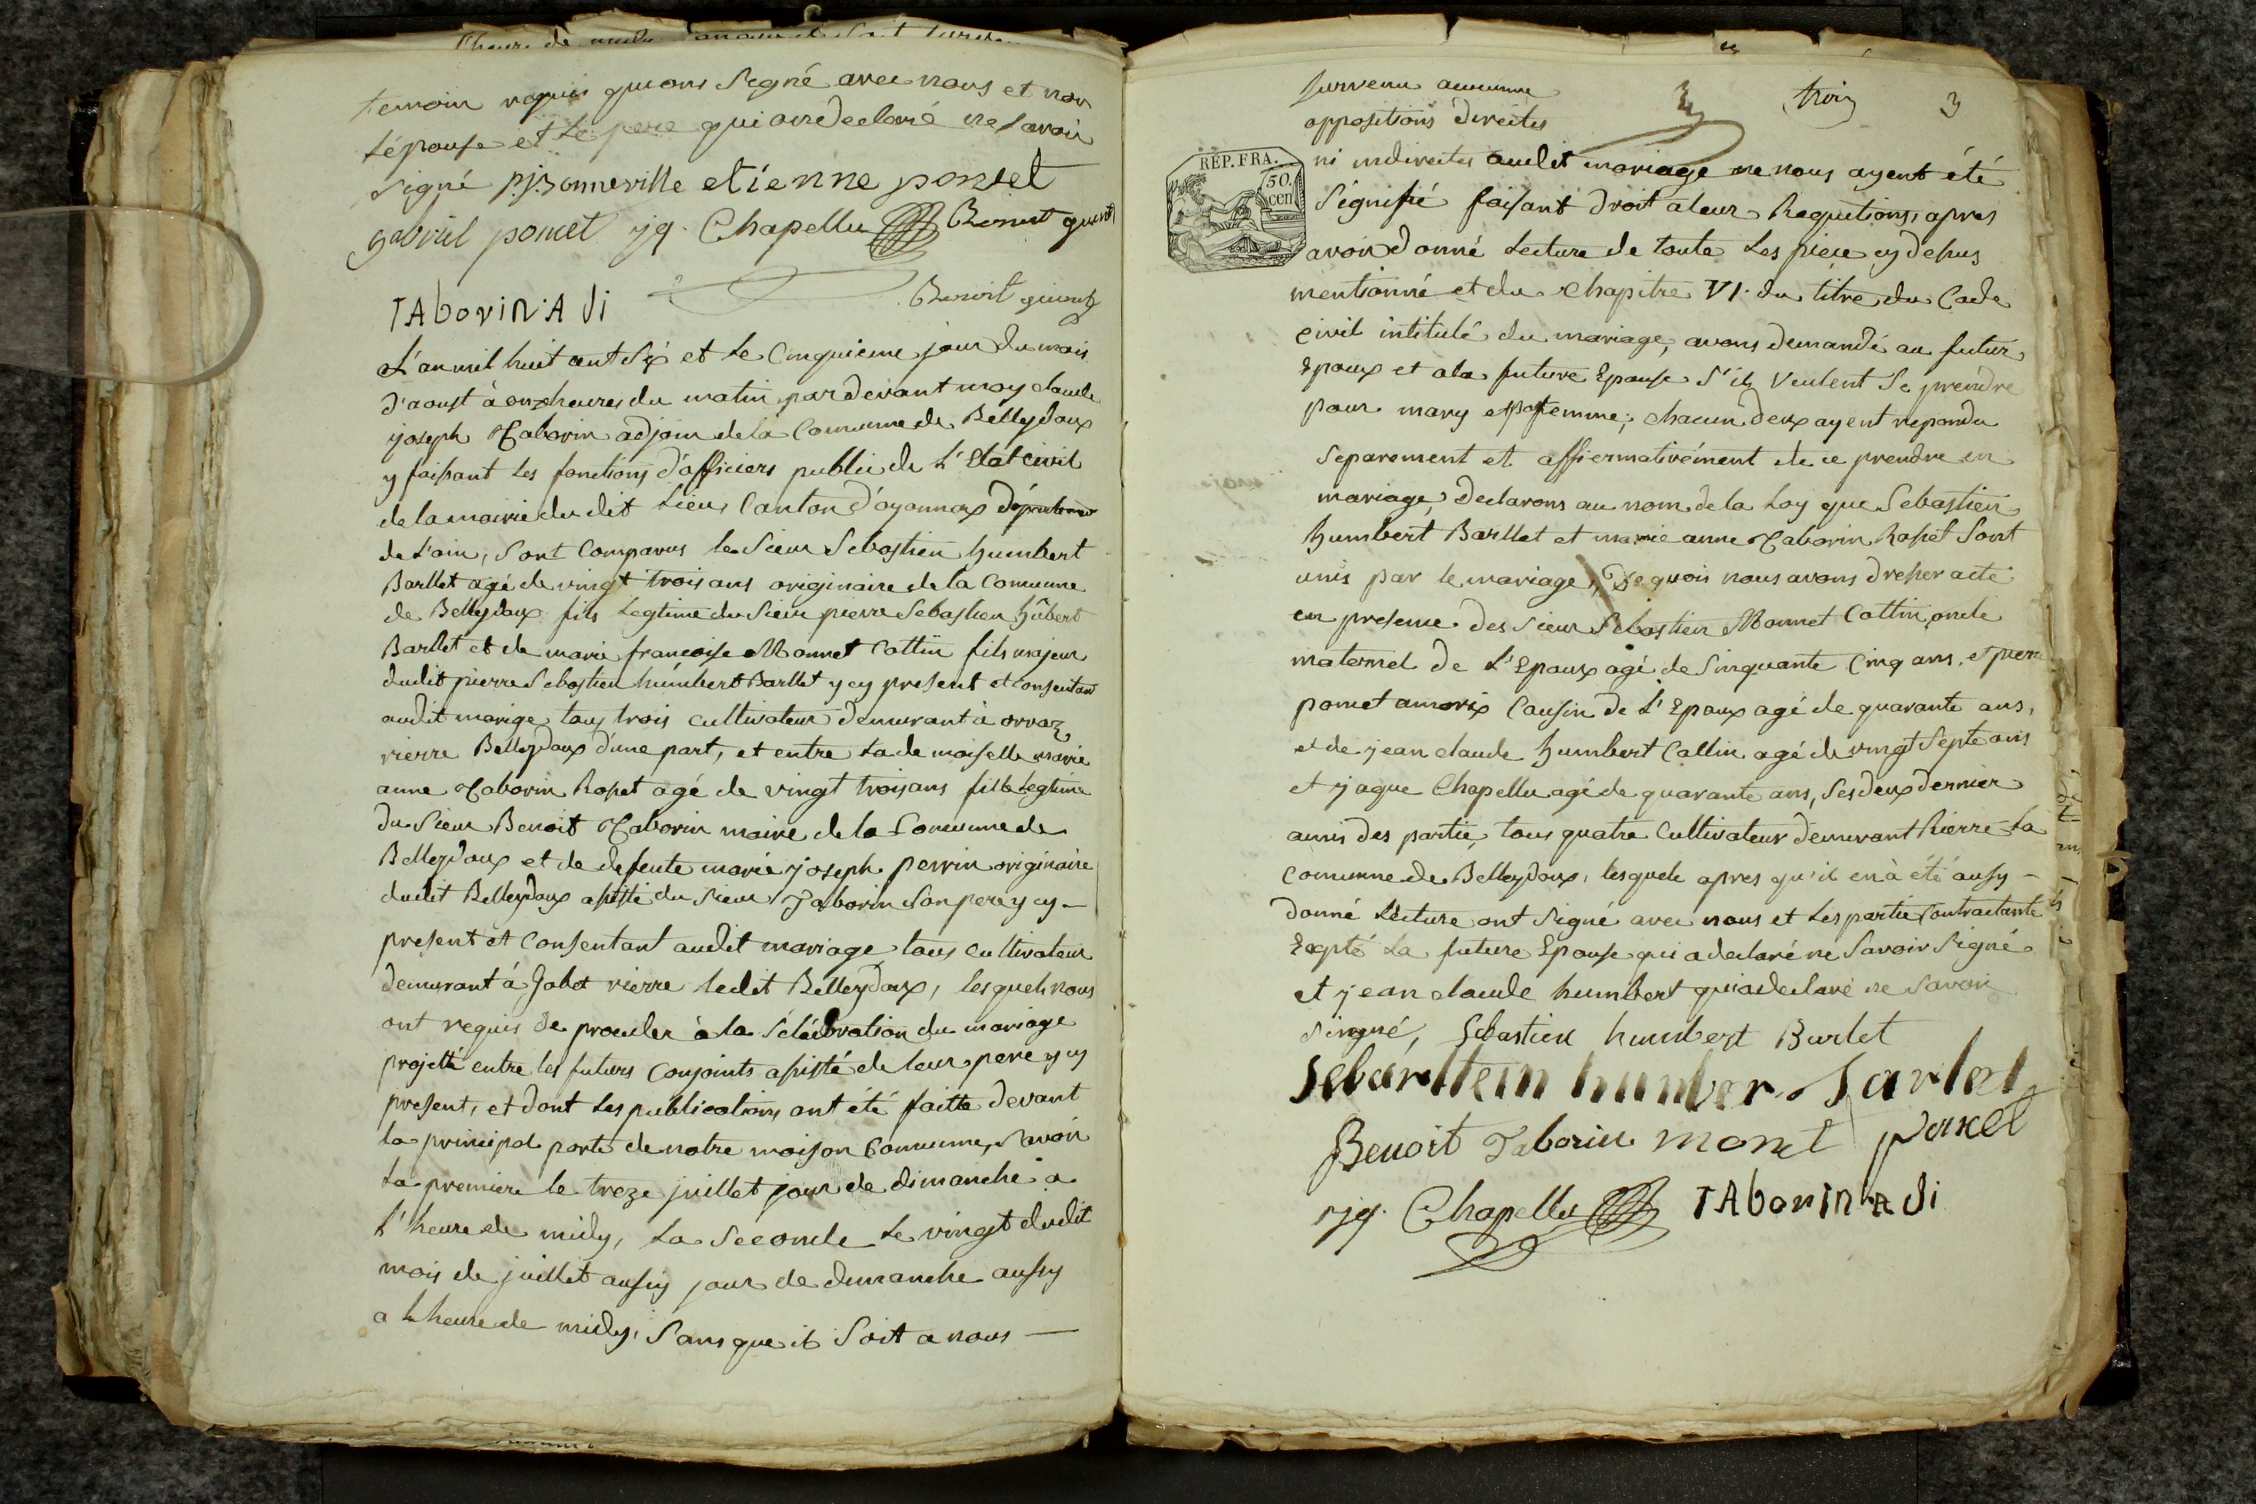 temoin requis qui ons Signé avec nous et non
L'épouse et Le pere qui ons declaré ne Savoir
Signé p.j.Bonneville etienne ponset
gabriel poncet jq. Chapellu Benoit
Benoit
TAboriN A di
L'an mil huit cent Six et Le Cinquieme jour du mois
d'aoust à onze heures du matin par devant moy claude
joseph Taborin adjoin de la Commune de Belleydoux
y faisant Les fonctions d'officiers public de L'Etat civil
de la mairie du dit Lieu Canton d'oyonnax département
de L'ain, Sont Comparus le Sieur Sebastien humbert
Barllet agé de vingt trois ans originaire de la Commune
de Belleydoux fils Legtime du Sieur pierre Sebastien hûbert
Barllet et de marie françoise Monnet Cattin fils majeur
dudit pierre Sebastien humbert Barllet y cy present et consentant
audit marige tous trois cultivateur demurant à orvaz
rierre Belleydoux d'une part, et entre La de moiselle marie
anne Taborin Rosset agé de vingt trois ans fille Legtime
du Sieur Benoit Taborin maire de la Commune de
Belleydoux et de defente marie joseph perrin originaire
dudit Belleydoux assisté du Sieur Taborin Son pere y cy -
present et Consentant audit mariage tous cultivateur
demurant à Gobet rierre ledit Belleydoux, lesquels nous
ont requis de proceder à la Célébration du mariage
projetté entre les futurs Conjoints assisté de leur pere y cy
present, et dont Les publications ont été faitte devant
la principal porte de notre maison Commune, Savoir
La premiere le treze juillet jour de dimanche a
L'heure de midy, La Seconde Le vingt dudit
mois de juillet aussy jour de dimanche aussy
a L heure de midy, Sans que il Soit a nous -
Survenu aucunne
trois 3
oppositions directes
RÉP. FRA.
50.
cen
ni indirectes audit mariage ne nous ayent été
Signifié faisant droit a leur Requitions, apres
avoir donné Lecture de toute Les piece cy desus
mentionné et du Chapitre VI. du titre du Code
civil intitulé du mariage, avons demandé au futur
Epoux et a la future Epouse S'ils veulent Se prendre
pour mary et femme; chacun deux ayent repondu
Separement et affiermativément de ce prendre en
mariage, declarons au nom de la Loy que Sebastien
humbert Barllet et marie anne Taborin Rosset Sont
unis par le mariage, De quois nous avons dresser acte
en presence des Sieur Sebastien Monnet Cattin oncle
maternel de L'Epoux agé de Sinquante Cinq ans, et pierre
pomet amorix Causin de L'Epoux agé de quarante ans,
et de jean claude humbert Cattin agé de vingt Septe ans
et jaque Chapellu agé de quarante ans, Ses deux dernier
amis des partie, tous quatre Cultivateur demurant Rierre La
Commune de Belleydoux, lesquels apres qu'il en à été aussy -
donné Lecture ont Signé avec nous et Les partie Contractante
Exepté La future Epouse qui a declaré ne Savoir Signé
et jean claude humbert qui a declaré ne Savoir
Singné, Sebastien humbert Barlet
Sebarsttein humber Barlet
Benoit Taborin monet poncet
jq. Chapellu TAboriN A di